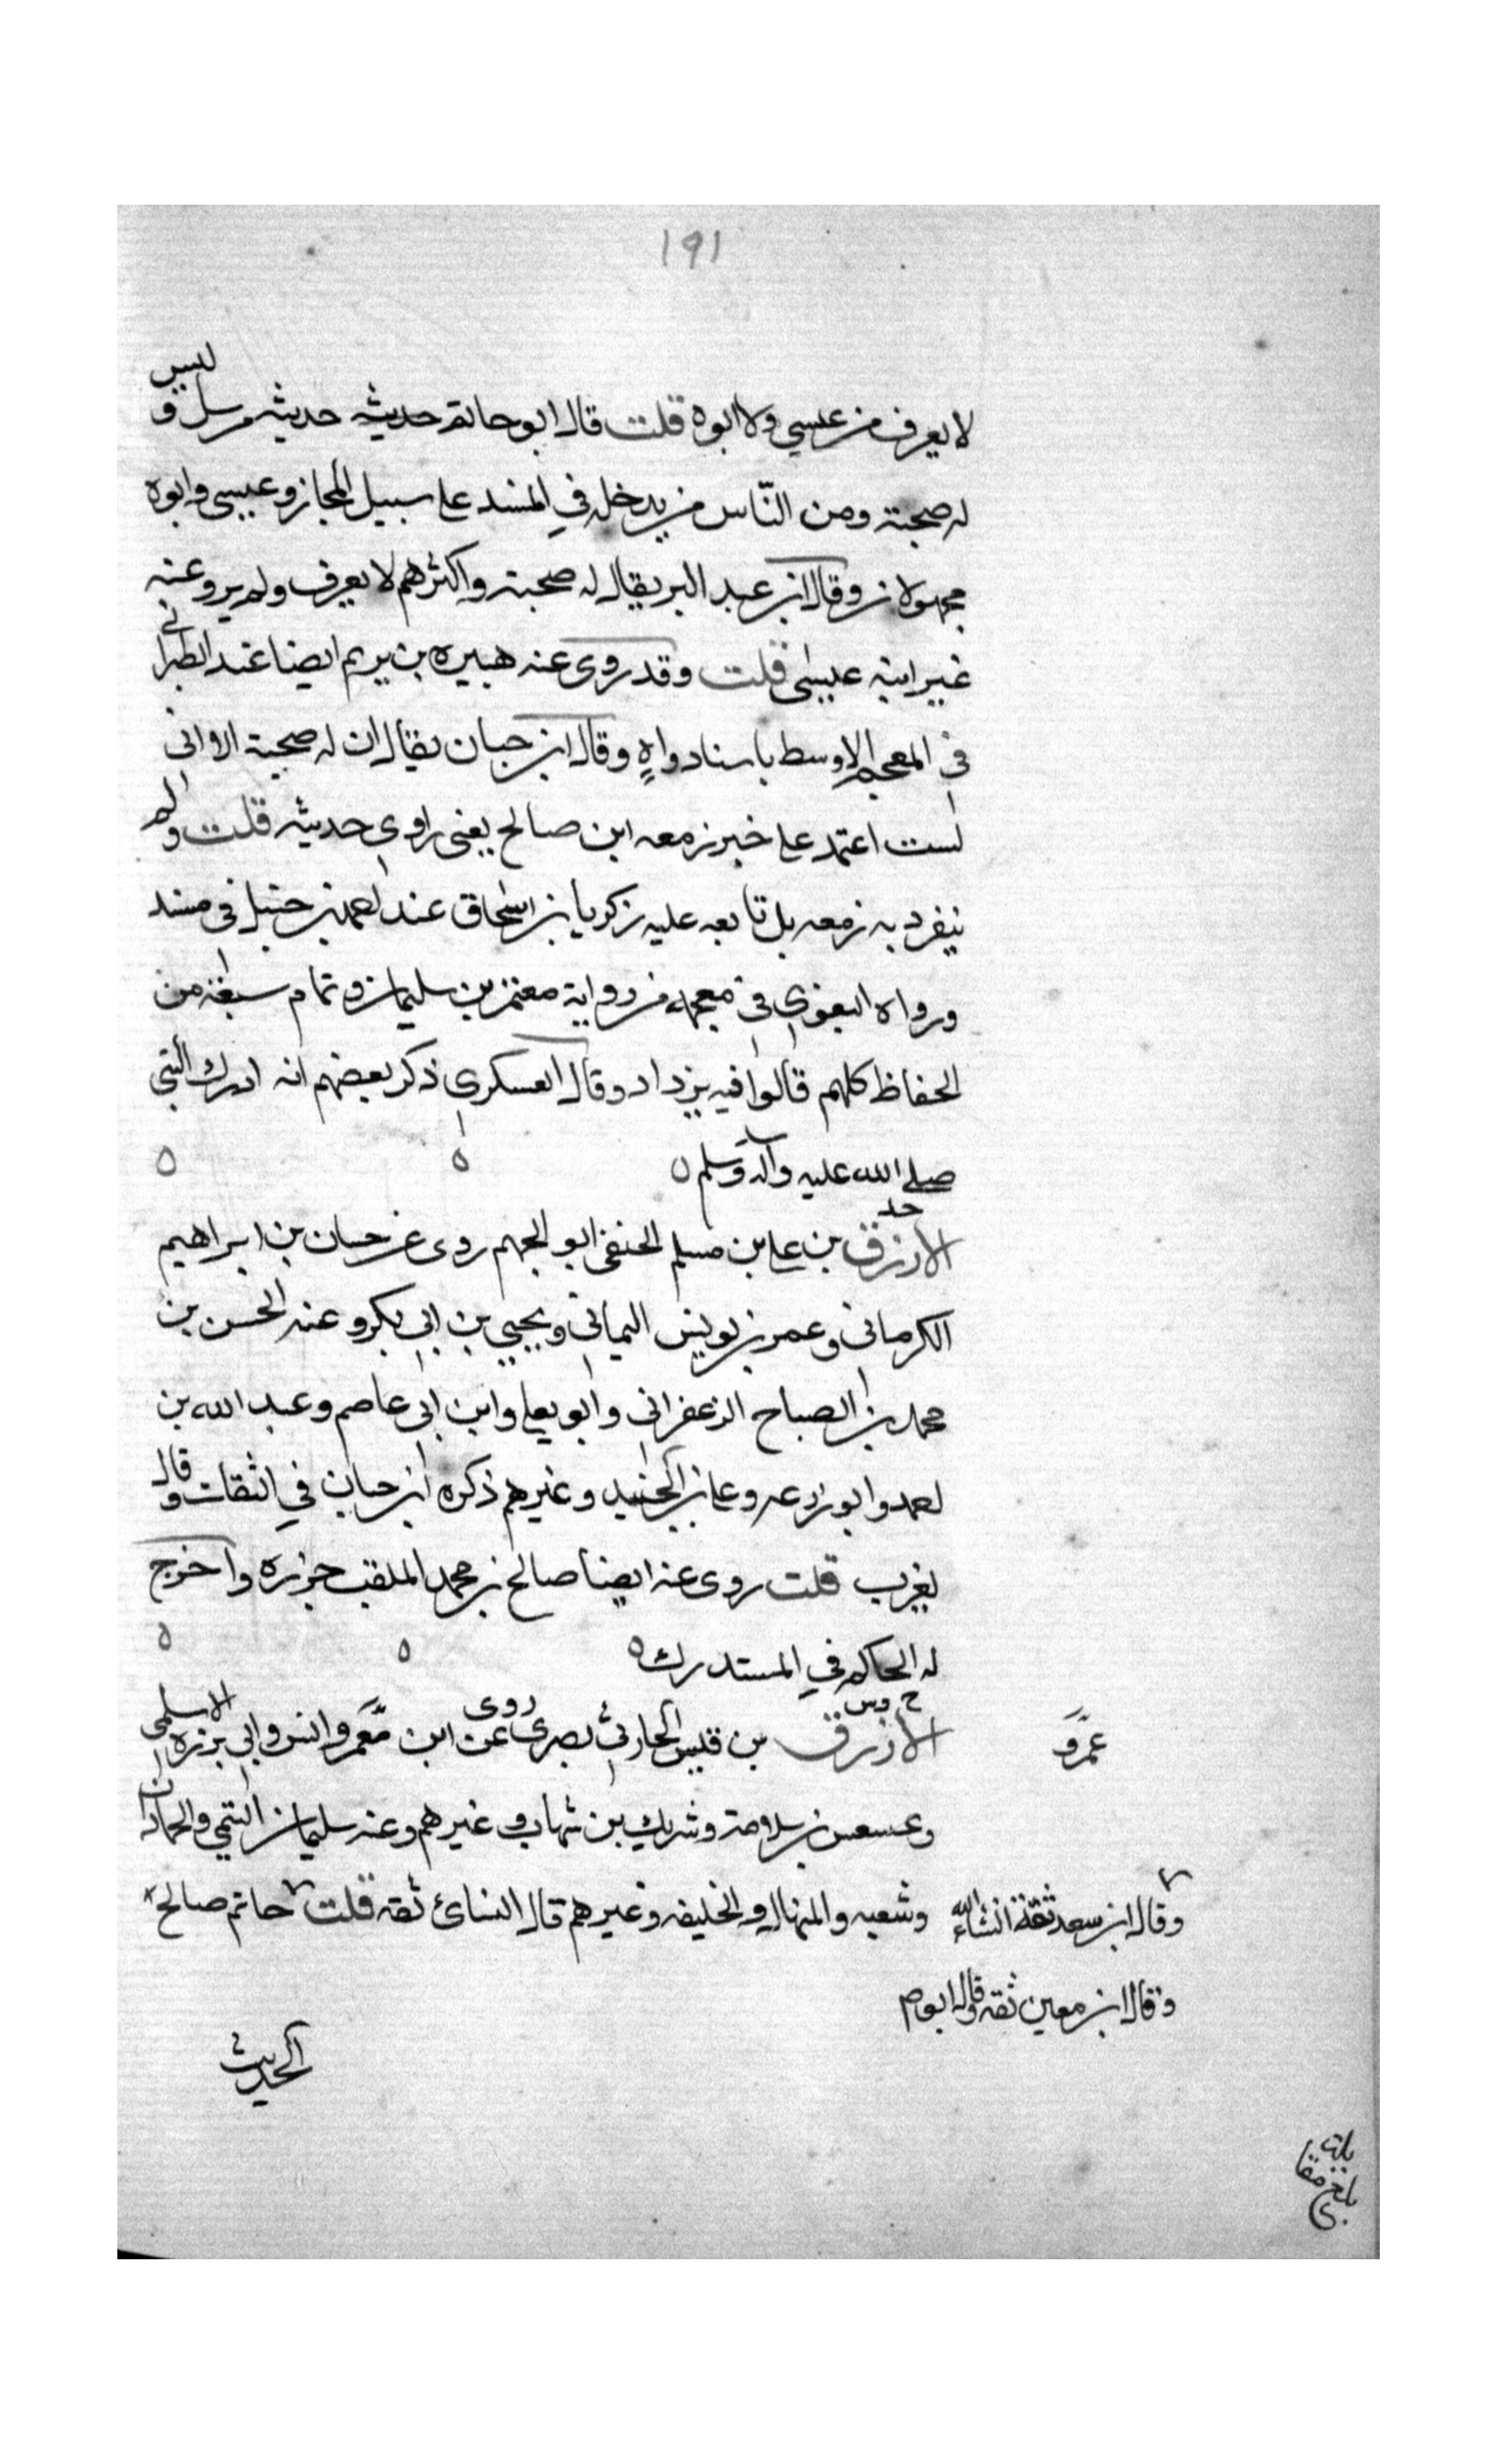 ١٩١
لا يعرف من عيسي ولا ابوه قلت قال ابو حاتم حديثه حديثه مرسل وليس
له صحبته ومن النّاس من يدخله في المسند على سبيل المجاز وعيسى وابوه
مجهولان وقال ابن عبد البر يقال له صحبته واكثرهم لا يعرف ولم يرو عنه
غير ابنه عيسى قلت وقد روى عنه هبيره بن يريم ايضا عند الطبراني
في المعجم الاوسط باسناد واهٍ وقال ابن حبان يقال ان له صحبة الا اني
لست اعتمد على خبر زمعه ابن صالح يعني راوي حديثه قلت ولم
ينفرد به زمعه بل تابعه عليه زكريا بن اسحاق عند احمد بن حنبل في مسند
ورواه البغوي في معجمه من رواية معتمر بن سليمان وتمام سبعة من
الحفاظ كلهم قالوا فيه يزداد وقال العسكري ذكر بعضهم انه ادرك النبي
صلى الله عليه وآله وسلم ٥ ٥ ٥
حد
الازرق بن علي بن مسلم الحنفي ابو الجهم روى عن حسان بن ابراهيم
الكرماني وعمر بن يونس اليماني ويحيي بن ابي بكر وعنه الحسن بن
محمد بن الصباح الزعفراني وابو يعلى وابن ابي عاصم وعبد الله بن
احمد وابو زرعه وعلي بن الجنيد وغيرهم ذكره ابن حبان في الثقات وقال
يغرب قلت روى عنه ايضا صالح بن محمد الملقب جزره واخرج
له الحاكم في المستدرك ٥ ٥ ٥
خ وس
الازرق بن قيس الحارثي بصرى روى عن ابن عمر وانس وابي برزه الاسلمي
عمرو
وعسعس بن سلامة وشريك بن شهاب وغيرهم وعنه سليمان التيمي والحمادان
وشعبه والمنهال والخليفه وغيرهم قال النسائ ثقه قلت حاتم صالح
وقال ابن سعد ثقة انشاء الله
وقال ابن معين ثقه وقال ابو
الحديث
بلغ مقا